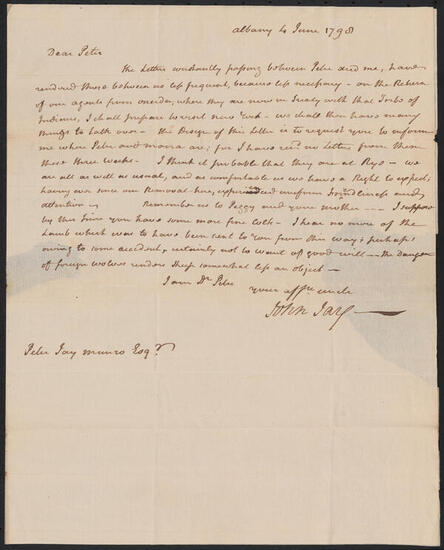 Albany 4 June 1798
Dear Peter
The Letters constantly passing between Peter and me, have
rendered those between us less frequent, because less necessary - on the Return
of our agents from oneida, where they are now in Treaty with that Tribe of
Indians, I shall prepare to visit new York - we shall then have many
things to talk over - the Design of this Letter is to request you to inform
me where Peter and maria are; for I have recd. no Letter from them
these three weeks - I think it probable that they are at Rye - we
are all as well as usual, and as comfortable as we have a Right to expect;
having ever since our Removal here, experienced uniform Friendliness and
attention - Remember us to Peggy and your mother - I suppose
by this Time you have some more fine Colts - I hear no more of the
Lamb which was to have been sent to you from this way; perhaps
owing to some accident, certainly not to want of good will - the Danger
of foreign wolves renders Sheep somewhat less an object -
I am Dr. Peter
your affte. uncle
John Jay
Peter Jay munro Esqr.